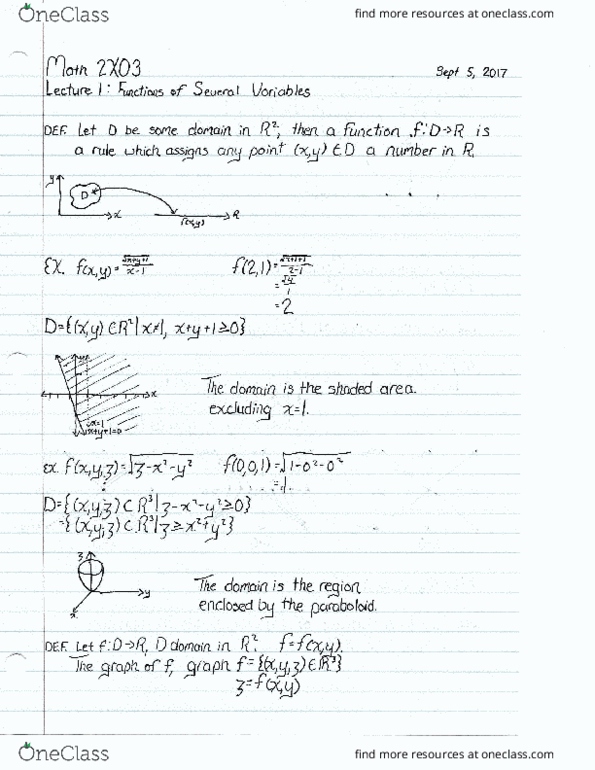 OneClass
find more resources at oneclass.com
Math 2X03
Sept 5, 2017
Lecture 1: Functions of Several Variables
DEF. Let D be some domain in R², then a function f:D→R is
a rule which assigns any point (x,y) ∈ D a number in R.
y
D
x
f(x,y)
R
EX. f(x,y)=√(x+y+1)/(x-1)
f(2,1)=√(2+1+1)/(2-1)
=√4/1
=2
D={(x,y)∈R²|x≠1, x+y+1≥0}
x
x=1
x+y+1=0
The domain is the shaded area.
excluding x=1.
EX. f(x,y,z)=√(z-x²-y²)
f(0,0,1)=√(1-0²-0²)
=1
D={(x,y,z)⊂R³|z-x²-y²≥0}
={(x,y,z)⊂R³|z≥x²+y²}
z
y
x
The domain is the region
enclosed by the paraboloid.
DEF. Let f:D→R, D domain in R². f=f(x,y).
The graph of f, graph f={(x,y,z)∈R³}
z=f(x,y)
OneClass
find more resources at oneclass.com